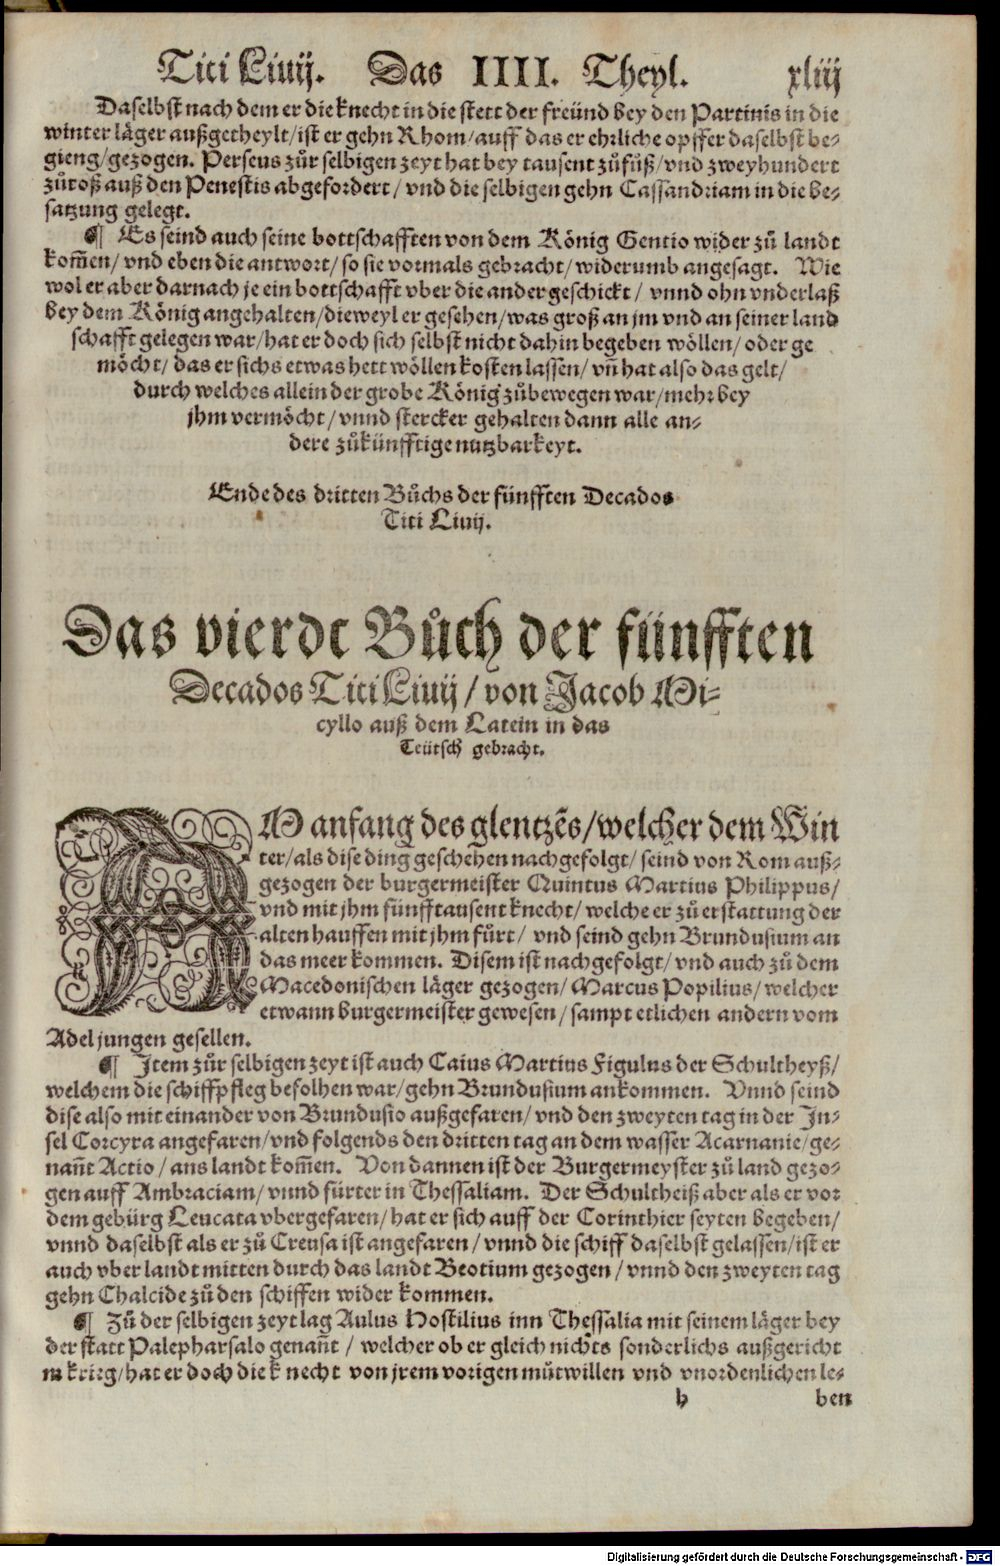 Titi Liuij. Das IIII. Theyl. xliij
Daselbst nach dem er die knecht in die stett der freünd bey den Partinis in die
winter läger außgetheylt/ ist er gehn Rhom/ auff das er ehrliche opffer daselbst be-
gieng/ gezogen. Perseus zůr selbigen zeyt hat bey tausent zůfůß/ vnd zweyhundert
zůroß auß den Penestis abgefordert/ vnd die selbigen gehn Cassandriam in die be-
satzung gelegt.
¶ Es seind auch seine bottschafften von dem König Gentio wider zů landt
kom̃en/ vnd eben die antwort/ so sie vormals gebracht/ widerumb angesagt. Wie
wol er aber darnach je ein bottschafft vber die ander geschickt/ vnnd ohn vnderlaß
bey dem König angehalten/ dieweyl er gesehen/ was groß an jm vnd an seiner land
schafft gelegen war/ hat er doch sich selbst nicht dahin begeben wöllen/ oder ge
möcht/ das er sichs etwas hett wöllen kosten lassen/ vñ hat also das gelt/
durch welches allein der grobe König zůbewegen war/ mehr bey
jhm vermöcht/ vnnd stercker gehalten dann alle an-
dere zůkünfftige nutzbarkeyt.
Ende des dritten Bůchs der fünfften Decados
Titi Liuij.
Das vierdt Bůch der fünfften
Decados Titi Liuij/ von Jacob Mi-
cyllo auß dem Latein in das
Teütsch gebracht.
AM anfang des glentzẽs/ welcher dem Win
ter/ als dise ding geschehen nachgefolgt/ seind von Rom auß-
gezogen der burgermeister Quintus Martius Philippus/
vnd mit jhm fünfftausent knecht/ welche er zů erstattung der
alten hauffen mit jhm fůrt/ vnd seind gehn Brundusium an
das meer kommen. Disem ist nachgefolgt/ vnd auch zů dem
Macedonischen läger gezogen/ Marcus Popilius/ welcher
etwann burgermeister gewesen/ sampt etlichen andern vom
Adel jungen gesellen.
¶ Item zůr selbigen zeyt ist auch Caius Martius Figulus der Schultheyß/
welchem die schiffpfleg befolhen war/ gehn Brundusium ankommen. Vnnd seind
dise also mit einander von Brundusio außgefaren/ vnd den zweyten tag in der In-
sel Corcyra angefaren/ vnd folgends den dritten tag an dem wasser Acarnanie/ ge-
nañt Actio/ ans landt kom̃en. Von dannen ist der Burgermeyster zů land gezo-
gen auff Ambraciam/ vnnd fürter in Thessaliam. Der Schultheiß aber als er vor
dem gebürg Leucata vbergefaren/ hat er sich auff der Corinthier seyten begeben/
vnnd daselbst als er zů Creusa ist angefaren/ vnnd die schiff daselbst gelassen/ ist er
auch vber landt mitten durch das landt Beotium gezogen/ vnnd den zweyten tag
gehn Chalcide zů den schiffen wider kommen.
¶ Zů der selbigen zeyt lag Aulus Hostilius inn Thessalia mit seinem läger bey
der statt Palepharsalo genañt/ welcher ob er gleich nichts sonderlichs außgericht
m krieg/ hat er doch die knecht von jrem vorigen můtwillen vnd vnordenlichen le-
h ben
Digitalisierung gefördert durch die Deutsche Forschungsgemeinschaft - DFG